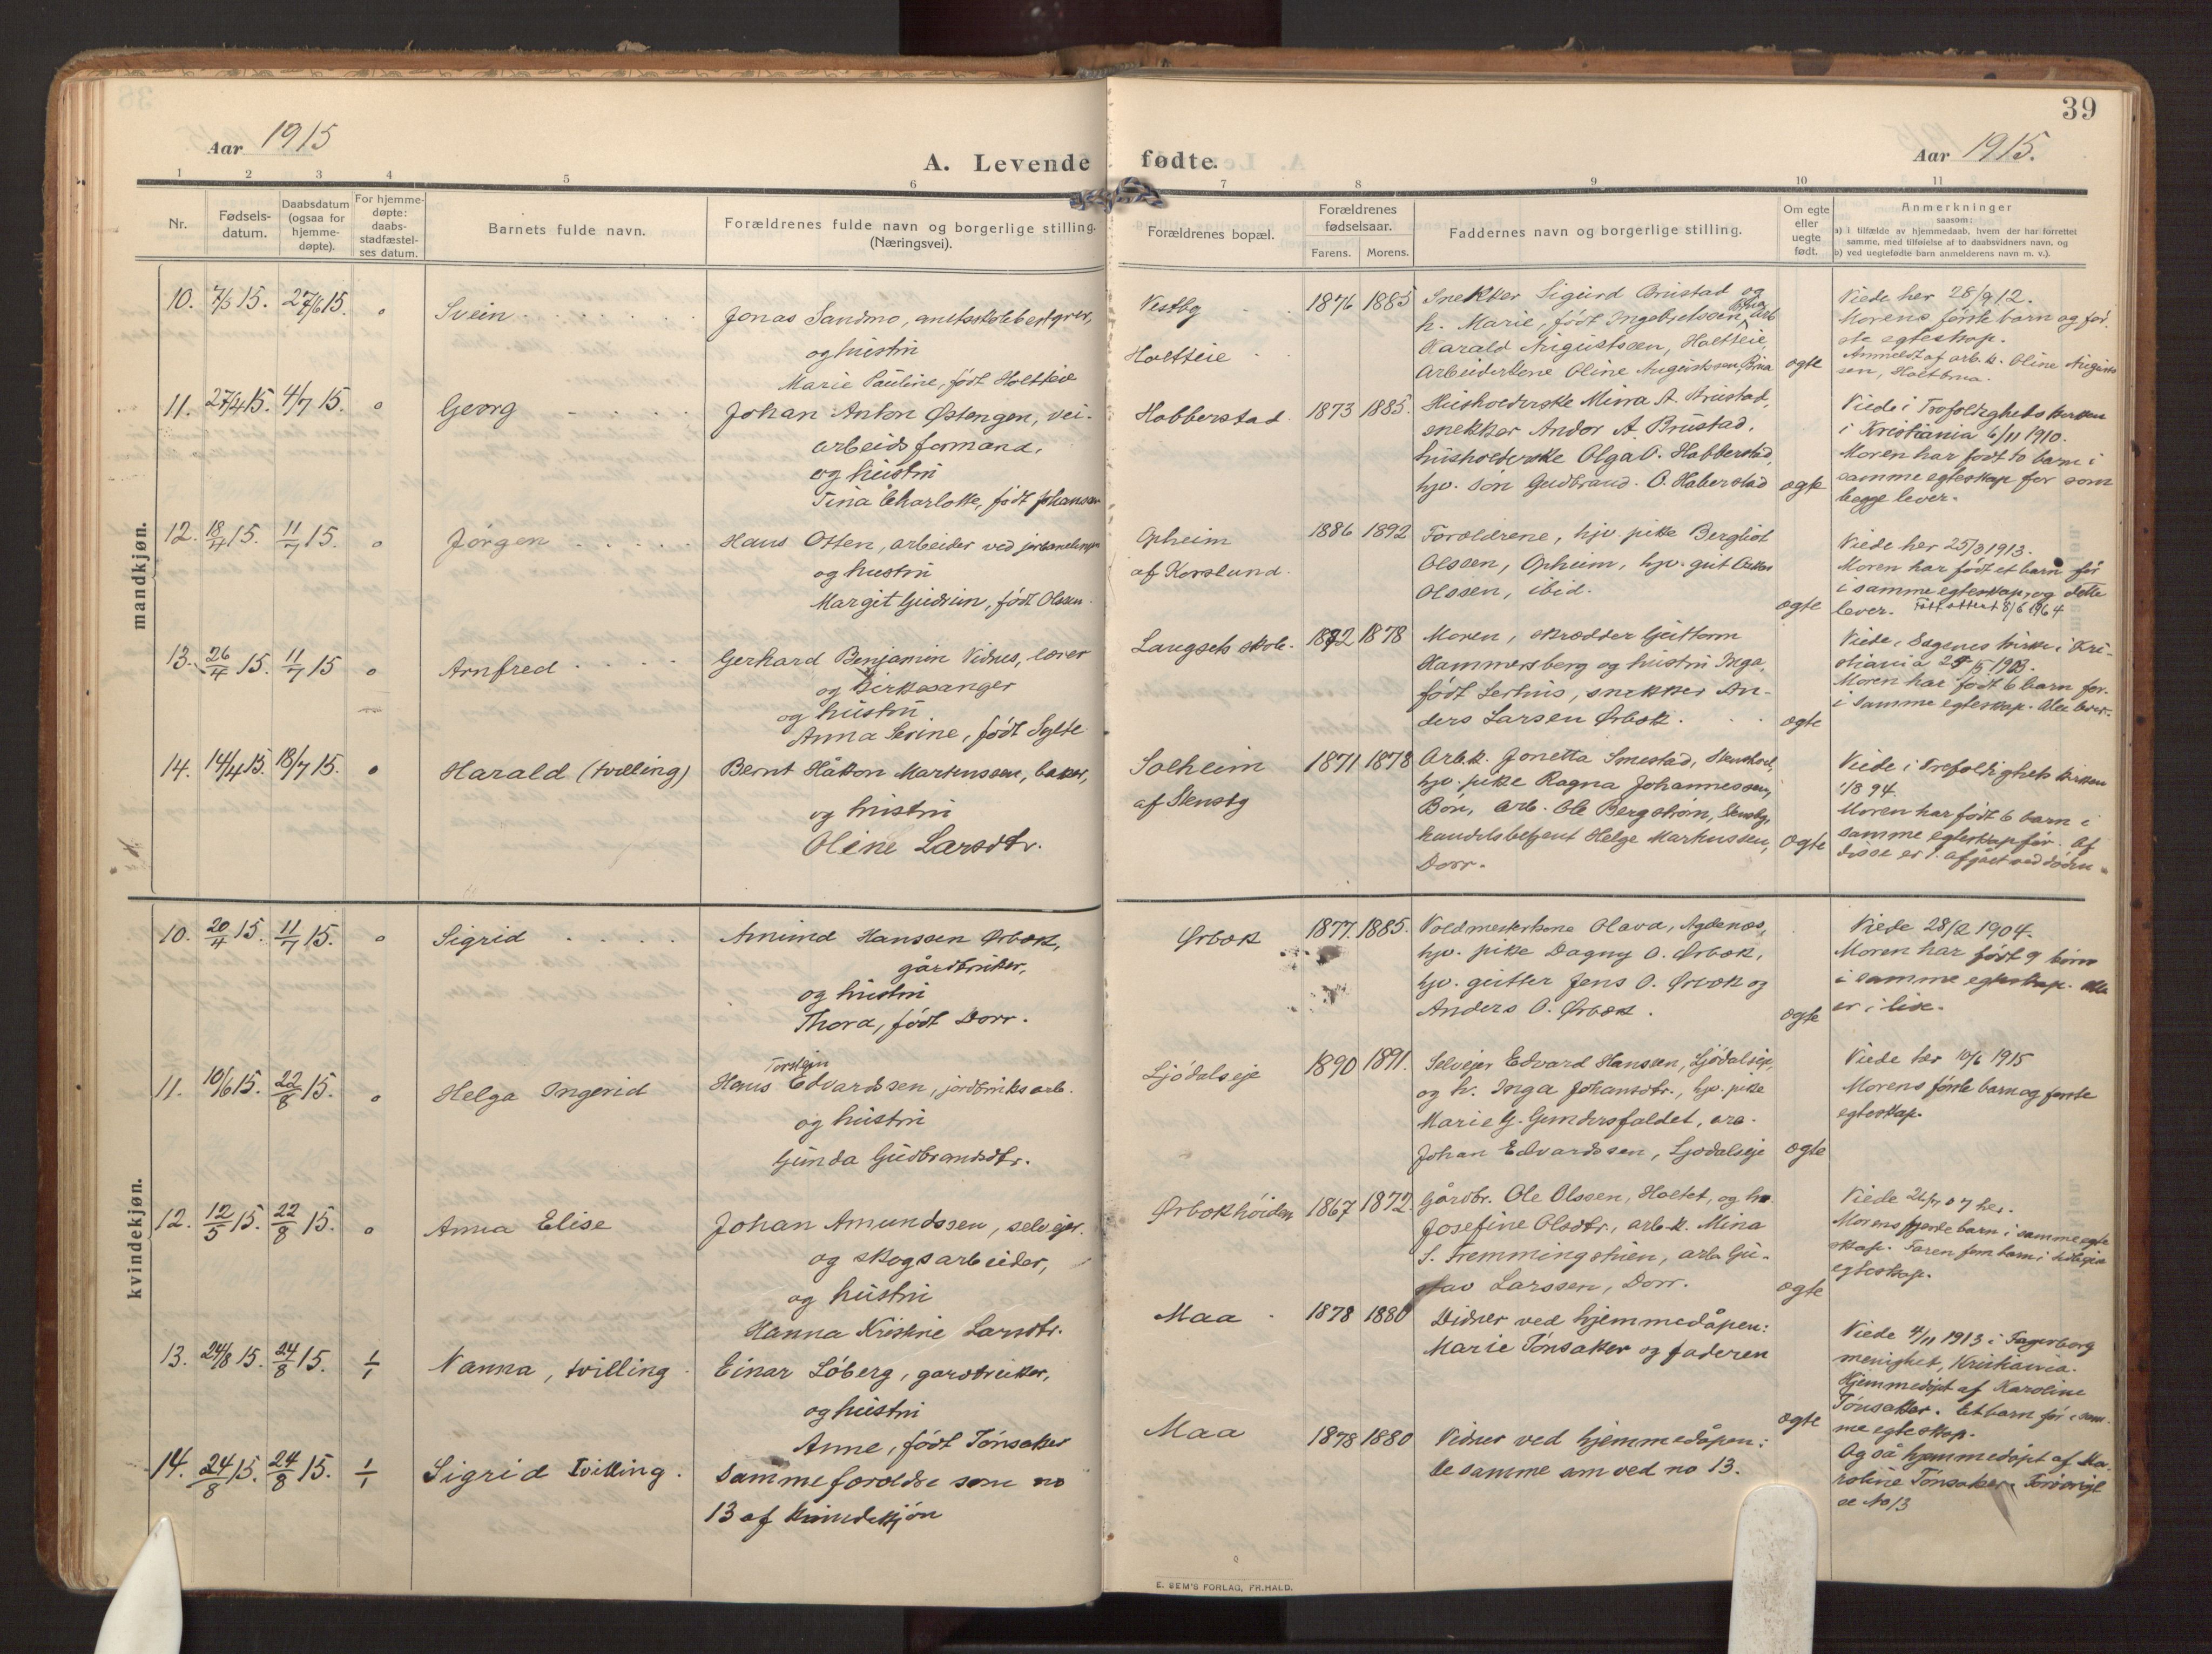 39
Aar 1915
A. Levende fødte.
Aar 1915.
1 2 3 4 5 6 7 8 9 10 11
Nr.
Fødsels-
datum.
Daabsdatum
(ogsaa for
hjemme-
døpte).
For hjemme-
døpte:
daabs-
stadfæstel-
ses datum.
Barnets fulde navn.
Forældrenes fulde navn og borgerlige stilling.
(Næringsvei).
Forældrenes bopæl.
Forældrenes
fødselsaar.
Farens. Morens.
Faddernes navn og borgerlige stilling.
Om egte
eller
uegte
født.
Anmerkninger
saasom:
a) i tilfælde av hjemmedaab, hvem der har forrettet
samme, med tilføielse af to daabsvidners navn, og
b) ved uegtefødte barn anmelderens navn m. v.).
mandkjøn.
10. 7/5 15. 27/6 15. 0
Svein
Jonas Sandmo, amtsskolebestyrer,
og hustru
Marie Pauline, født Holtteie
Vestby
Holtteie
1876 1885
Snekker Sigurd Brustad og
h. Marie, født Ingebretsen, arb
Harald Augustssen, Holtteie,
Arbeiderkone Oline Augustssen,
egte
Viede her 28/9 12.
Morens første barn og før-
ste egteskap.
Anmeldt af arb.k. Oline August-
sen, Holtbrua.
11. 27/4 15. 4/7 15. 0
Georg
Johan Anton Østengen, vei-
arbeidsformand,
og hustru
Tina Charlotte, født Johansen
Habberstad
1873 1885.
Husholderske Minna A. Brustad,
snekker Andor A. Brustad,
husholderske Olga O. Habberstad,
hjv. søn Gudbrand O. Haberstad
egte
Viede i Trefoldighetskirken
i Kristiania 6/11 1910.
Moren har født to barn i
samme egteskap før som
begge lever.
12. 18/4 15. 11/7 15. 0
Jørgen
Hans Olsen, arbeider ved jernbanelinjen
og hustru
Margit Gudrun, født Olssen
Opheim
af Korslund.
1886 1892
Forældrene, hjv. pike Bergliot
Olssen, Opheim, hjv. gut Oskar
Olssen, ibid.
egte
Viede her 25/3 1913.
Moren har født et barn før
i samme egteskap, og dette
lever. Fødselsattest 8/6 1964
13. 26/4 15. 11/7 15 0
Arnfred
Gerhard Benjamin Vidnes, lærer
og kirkesanger
og hustru
Anna Sevrine, født Sylte
Langset skole.
1872 1878
Moren, skrædder Guttorm
Hammersberg og hustru Inga,
født Lerhus, snekker An-
ders Larsen Ørbæk.
egte
Viede i Sagenes kirke i Kri-
stiania 1903.
Moren har født 6 barn før
i samme egteskap. Alle lever.
14. 14/4 15. 18/7 15. 0
Harald (tvilling)
Bernt Håkon Markussen, baker,
og hustru
Oline Larsdtr.
Solheim
af Stensby
1871 1878
Arb.k. Jonetta Smestad,
hjv. pike Ragna Johannessen,
Bøn, arb. Ole Bergstrøm, Stensby,
handelsbetjent Helge Markussen,
Dorr.
egte
Viede i Trefoldighetskirken
1894.
Moren har født 6 barn i
samme egteskap før. Af
disse er 1 afgået ved døden.
kvindekjøn.
10. 20/4 15. 11/7 15. 0
Sigrid
Amund Hanssen Ørbæk,
gårdbruker,
og hustru
Thora, født Dorr.
Ørbæk
1877. 1885.
Voldmesterkone Olava, Agdenæs,
hjv. pike Dagny O. Ørbæk,
hjv. gutter Jens O. Ørbæk og
Anders O. Ørbæk.
egte
Viede 28/12 1904.
Moren har født 9 børn
i samme egteskap. Alle
er i live.
11. 10/6 15. 22/8 15. 0
Helga Ingerid
Torstein
Hans Edvardssen, jordbruksarb.
og hustru
Gunda Gudbrandsdtr.
Ljødalseje
1890 1891.
Selvejer Edvard Hansen, Ljødalseje,
og h. Inga Johansdtr., hjv. pike
Marie G. Gundersfaldet, arb.
Johan Edvardssen, Ljødalseje
egte
Viede her 10/6 1915
Morens første barn og første
egteskap.
12. 12/5 15. 22/8 15. 0
Anna Elise
Johan Amundssen, selvejer
og skogsarbeider,
og hustru
Hanna Kristine Larsdtr.
Ørbækhøiden
1867 1872.
Gårdbr. Ole Olssen, Holtet, og h.
Josefine Olsdtr., arb.k. Mina
S. Fremmingstuen, arb. Gu-
stav Larssen, Dorr.
egte
Viede 07 her.
Morens fjerde barn i samme egte
skap. Faren fem barn i tidligere
egteskap.
13. 24/8 15. 24/8 15. 1/1
Nanna, tvilling
Einar Løberg, gårdbruker,
og hustru
Anne, født Tønsaker
Maa
1878 1880
Vidner ved hjemmedåpen:
Marie Tønsaker og faderen
egte
Viede 4/11 1913 i Fagerborg
menighet, Kristiania.
Hjemmedøpt af Karoline
Tønsaker. Et barn før i sam-
me egteskap.
14. 24/8 15. 24/8 15. 1/1
Sigrid Tvilling.
Samme foreldre som no
13 af Kvindekjøn
Maa
1878 1880
Vidner ved hjemmedåpen:
de samme som ved no 13.
Også hjemmedøpt af Ka-
roline Tønsaker. Forøvrigt
se No 13
E. SEM'S FORLAG, FR.HALD.